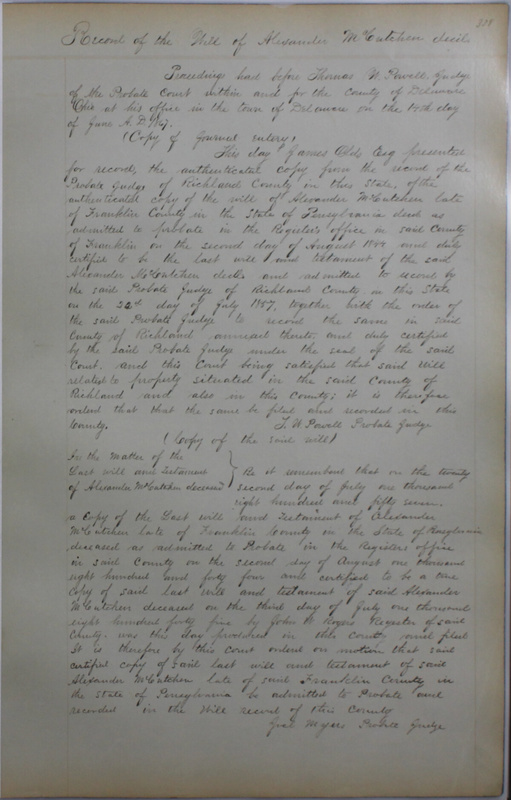 Record of the Will of Alexander McCutchen decd
Proceedings had before Thomas W. Powell Judge
of the Probate Court within and for the County of Delaware
Ohio at his office in the town of Delaware on the 14th day
of June A.D.
(Copy of Journal entery,
This day James Olds Esq presented
for record, the authenticated copy from the record of the
Probate Judge of Richland County in this State, of the
authenticated copy of the will of Alexander McCutchen late
of Franklin County in the State of Pensylvania decd as
admitted to probate in the Register's office in said County
of Franklin on the second day of August 1844 and duly
certified to be the last will and testament of the said
Alexander McCutchen decd and admitted to record by
the said Probate Judge of Richland County in this State
on the 22d day of July 1857, together with the order of
the said Probate Judge to record the same in said
County of Richland annexed thereto, and duly certified
by the said Probate Judge under the seal of the said
Court. and this Court being satisfied that said Will
related to property situated in the said County of
Richland and also in this County; it is therefore
orderd that that the same be filed and recorded in this
County. T. W Powell Probate Judge
(Copy of the said will)
In the matter of the
Last will and Testament
of Alexander McCutchen deceased
Be it remembered that on the twenty
second day of July one thousand
eight hundred and fifty seven.
a Copy of the Last will and Testament of Alexander
McCutchen late of Franklin County in the State of Pensylvania
deceased as admitted to Probate in the Registers office
in said County on the second day of August one thousand
eight hundred and forty four and certified to be a true
copy of said last will and testament of said Alexander
McCutchen deceased on the third day of July one thousand
eight hundred forty five by John W Register of said
County. was this day produced in this Court and filed
It is therefore by this court orderd on motion that said
certified copy of said last will and testament of said
Alexander McCutchen late of said Franklin County in
the State of Pensylvania be admitted to Probate and
recorded in the Will record of this County
Myers Probate Judge